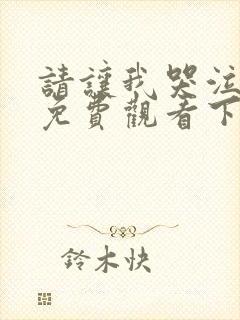 請讓我哭泣
免費觀看下
鈴木快